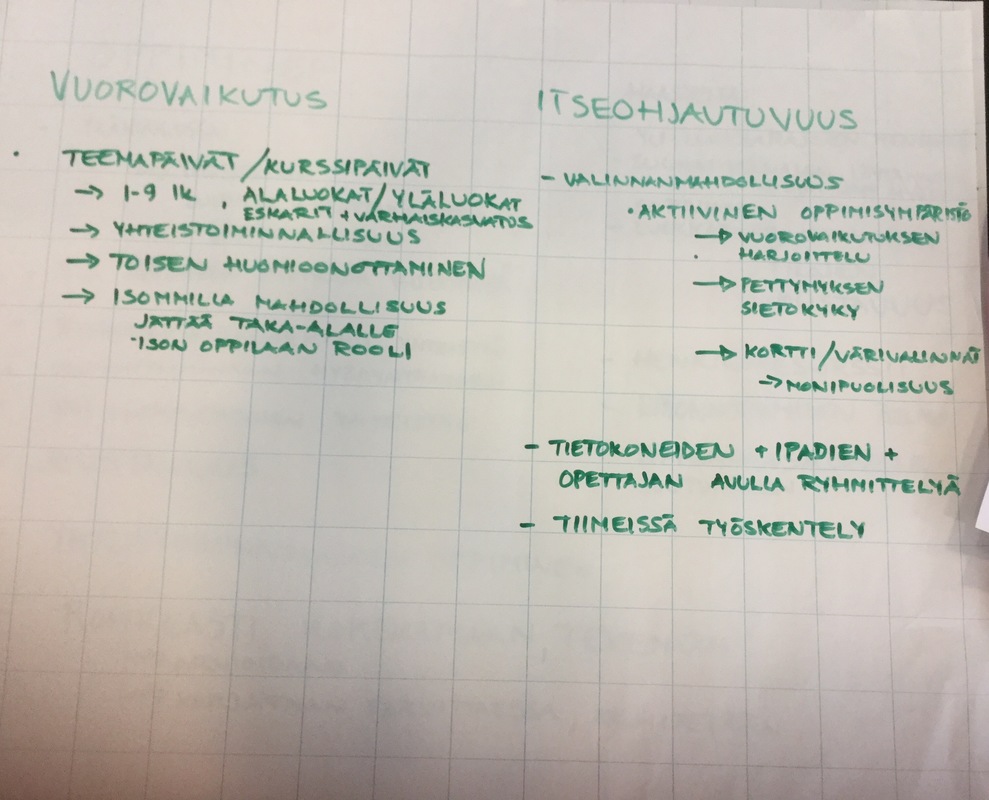 VUOROVAIKUTUS
• TEEMAPÄIVÄT / KURSSIPÄIVÄT
→ 1-9 lk, ALALUOKAT / YLÄLUOKAT
ESKARIT + VARHAISKASVATUS
→ YHTEISTOIMINNALLISUUS
→ TOISEN HUOMIOONOTTAMINEN
→ ISOMMILLA MAHDOLLISUUS
JÄTTÄÄ TAKA-ALALLE
"ISON OPPILAAN ROOLI
ITSEOHJAUTUVUUS
- VALINNANMAHDOLLISUUS
• AKTIIVINEN OPPIMISYMPÄRISTÖ
→ VUOROVAIKUTUKSEN
HARJOITTELU
→ PETTYMYKSEN
SIETOKYKY
→ KORTTI / VÄRIVALINNAT
→ MONIPUOLISUUS
- TIETOKONEIDEN + IPADIEN +
OPETTAJAN AVULLA RYHMITTELYÄ
- TIIMEISSÄ TYÖSKENTELY